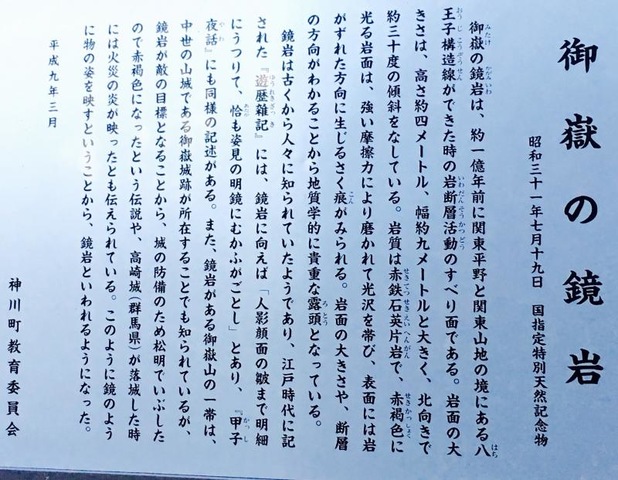 御嶽の鏡岩
昭和三十一年七月十九日　国指定特別天然記念物
御嶽の鏡岩は、約一億年前に関東平野と関東山地の境にある八
王子構造線ができた時の岩断層活動のすべり面である。岩面の大
きさは、高さ約四メートル、幅約九メートルと大きく、北向きで
約三十度の傾斜をなしている。岩質は赤鉄石英片岩で、赤褐色に
光る岩面は、強い摩擦力により磨かれて光沢を帯び、表面には岩
がずれた方向に生じるさく痕がみられる。岩面の大きさや、断層
の方向がわかることから地質学的に貴重な露頭となっている。
鏡岩は古くから人々に知られていたようであり、江戸時代に記
された『遊歴雑記』には、鏡岩に向えば「人影顔面の皺まで明細
にうつりて、恰も姿見の明鏡にむかふがごとし」とあり、『甲子
夜話』にも同様の記述がある。また、鏡岩がある御嶽山の一帯は、
中世の山城である御嶽城跡が所在することでも知られているが、
鏡岩が敵の目標となることから、城の防備のため松明でいぶした
ので赤褐色になったという伝説や、高崎城（群馬県）が落城した時
には火災の炎が映ったとも伝えられている。このように鏡のよう
に物の姿を映すということから、鏡岩といわれるようになった。
平成九年三月
神川町教育委員会